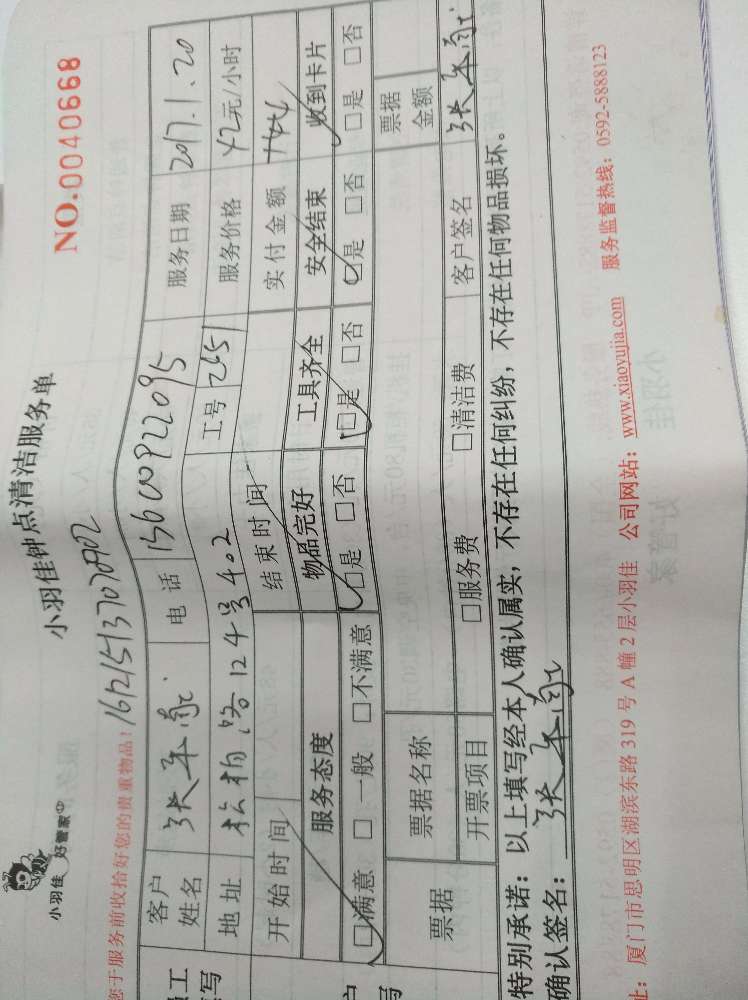 小羽佳 好管家
小羽佳钟点清洁服务单
NO.0040668
您于服务前收拾好您的贵重物品！16121513707902
客户姓名 电话 13600922095 服务日期 2017.1.20
地址 松柏路124号402 工号 2451 服务价格 42元/小时
开始时间 结束时间 实付金额 144
服务态度 物品完好 工具齐全 安全结束 收到卡片
□满意 □一般 □不满意 □是 □否 □是 □否 □是 □否 □是 □否
票据 票据名称 票据金额
开票项目 □服务费 □清洁费 客户签名
特别承诺：以上填写经本人确认属实，不存在任何纠纷，不存在任何物品损坏。
确认签名：
址：厦门市思明区湖滨东路319号A幢2层小羽佳 公司网站：www.xiaoyujia.com 服务监督热线：0592-5888123